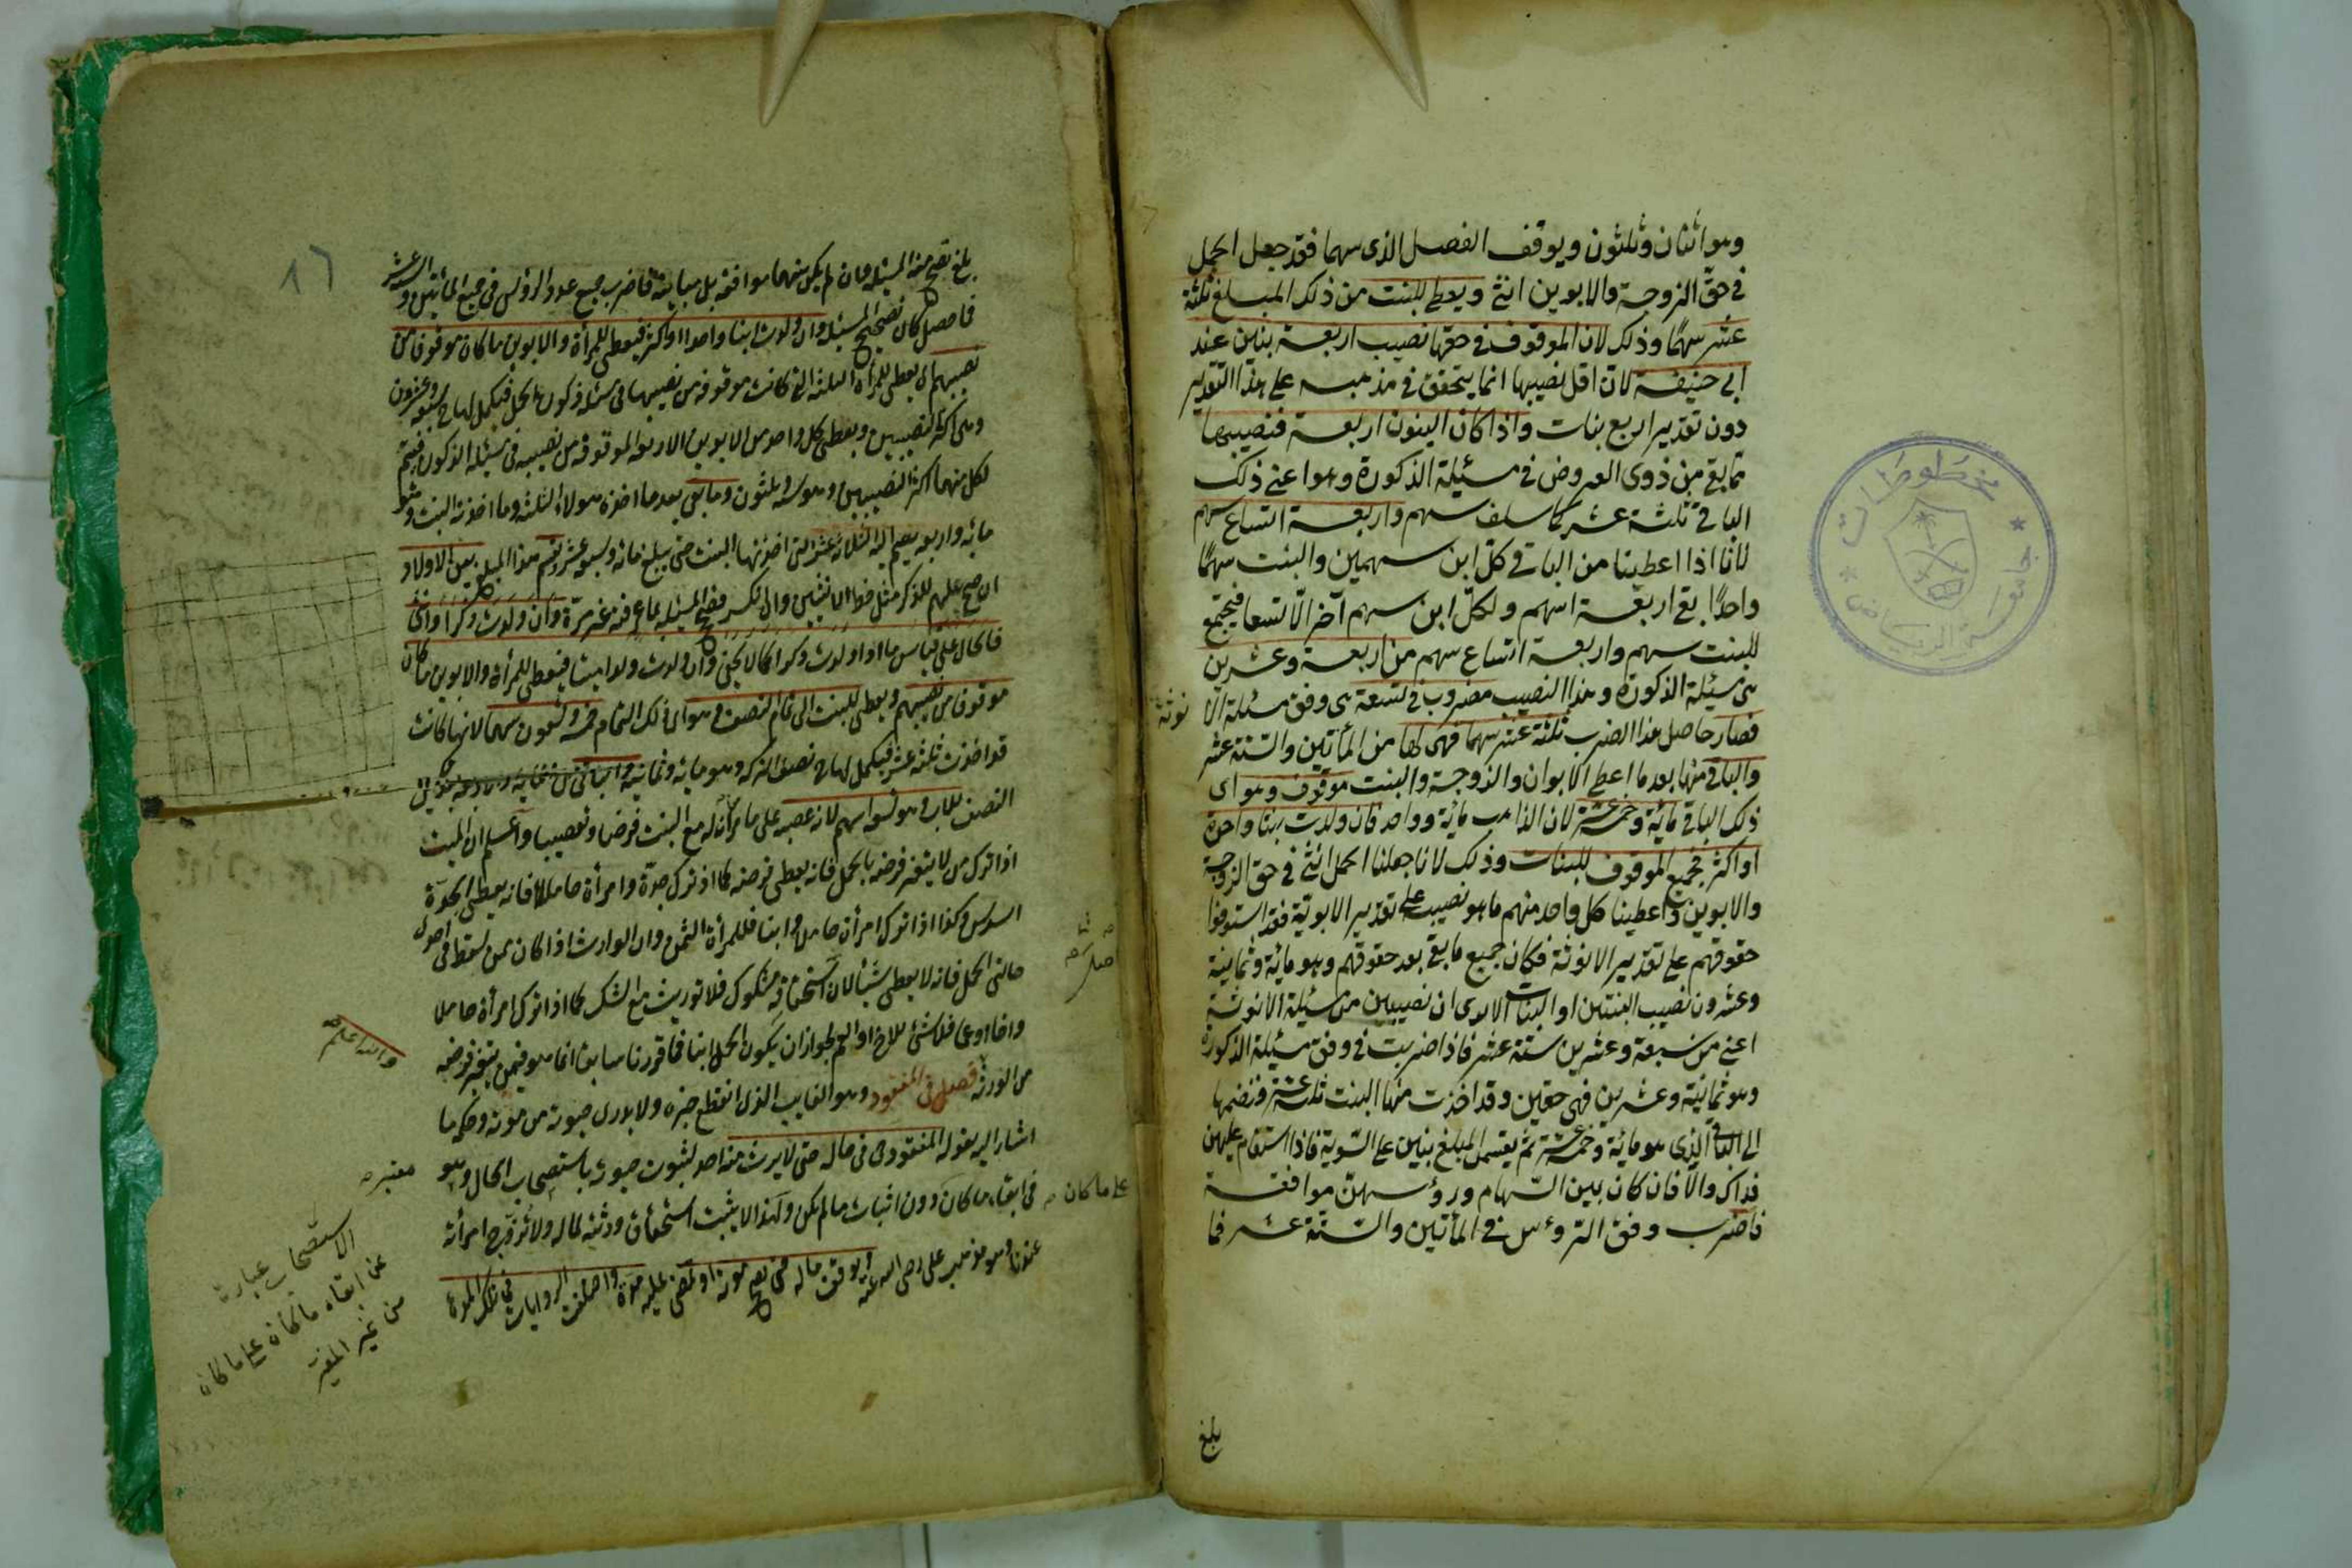 وهو اثنان وثلثون ويوقف الفصل الذى سهما فقد جعل الحمل
فى حق الزوجة والابوين انثى ويعطى للبنت من ذلك المبلغ ثلثة
عشر سهمًا وذلك لان الموقوف فى حقها نصيب اربعة بنين عند
ابى حنيفة لان اقل نصيبها انما يتحقق فى مذهبه على هذا التقدير
دون تقدير اربع بنات واذا كان البنون اربعة فنصيبها
مما بقى من ذوى الفروض فى مسئلة الذكورة وهو اعنى ذلك
الباقى ثلثة عشر كما سلف سهم واربعة اتساع سهم
لانا اذا اعطينا من الباقى كل ابن سهمين والبنت سهمًا
واحدًا بقى اربعة اسهم ولكل ابن سهم آخر الا تسعا فيجتمع
للبنت سهم واربعة اتساع سهم من اربعة وعشرين
هى مسئلة الذكورة وهذا النصيب مضروب فى تسعة هى وفق مسئلة الا
نوثة
فصار حاصل هذا الضرب ثلثة عشر سهما فهى لها من المأتين والستة عشر
والباقى منها بعد ما اعطى الابوان والزوجة والبنت موقوف وهو اى
ذلك الباقى مائة وخمسة عشر لان الذاهب مائة وواحد فان ولدت بنتا واحدة
او اكثر فجميع الموقوف للبنات وذلك لانا جعلنا الحمل انثى فى حق الزوجة
والابوين واعطينا كل واحد منهم ما هو نصيب على تقدير الانوثة فقد استوفوا
حقوقهم على تقدير الانوثة فكان جميع ما بقى بعد حقوقهم وهو مائة وثمانية
وعشرون نصيب البنتين او البنات الا يرى ان نصيبهن من مسئلة الانوثة
اعنى من سبعة وعشرين ستة عشر فاذا ضربت فى وفق مسئلة الذكورة
وهو ثمانية وعشرين فهى حقهن وقد اخذت منها البنت ثلثة عشر فنضمها
الى الباقى الذى هو مائة وخمسة عشر ثم يقسم المبلغ بينهن على السوية فاذا استقام عليهن
فذاك والا فان كان بين السهام ورؤسهن موافقة
فاضرب وفق الرؤس فى المأتين والستة عشر فما
بلغ
مخطوطات
جامعة الرياض
١٦
بلغ تصح منه المسئلة وان لم يكن بينهما موافقة بل مباينة فاضرب جميع عدد الرؤس فى جميع المأتين والستة عشر
فما حصل كان تصحيح المسئلة وان ولدت ابنا واحدا او اكثر فيعطى للمرأة والابوين ما كان موقوفا من
نصيبهم اى يعطى للمرأة الثلثة التى كانت موقوفة من نصيبها فى مسئلة ذكورة الحمل فيكمل لها سبعة وعشرون
وهى اكثر النصيبين ويعطى كل واحد من الابوين الاربعة الموقوفة من نصيبه فى مسئلة الذكورة فيتم
لكل منهما اكثر النصيبين وهو ستة وثلثون وما بقى بعد ما اخذه هؤلاء الثلثة وما اخذته البنت وهو
مائة واربعة يضم اليه الثلاثة عشر التى اخذتها البنت حتى يبلغ مائة وسبعة عشر ويقسم هذا المبلغ بين الاولاد
ان صح عليهم للذكر مثل حظ الانثيين وان انكسر فصحح المسئلة بما عرفته غير مرة وان ولدت ذكرا وانثى
فالحال على قياس ما اذا ولدت ذكرا كما لا يخفى وان ولدت ولدا ميتا فيعطى للمرأة والابوين ما كان
موقوفا من نصيبهم ويعطى للبنت الى تمام النصف وهو اى ذلك التمام خمسة وتسعون سهما لانها كانت
قد اخذت ثلثة عشر فيكمل لها نصف التركة وهو مائة وثمانية والباقى
النصف للاب وهو تسعة اسهم لانه عصبة على ما مر ان له مع البنت فرضا وتعصيبا واعلم ان الميت
اذا ترك من لا يتغير فرضه بالحمل فانه يعطى فرضه كما اذا ترك جدة وامرأة حاملا فانه يعطى الجدة
السدس وكذا اذا ترك امرأة حاملا وابنا فللمرأة الثمن وان الوارث اذا كان ممن يسقط فى احدى
حالتى الحمل فانه لا يعطى شيئا لان استحقاقه مشكوك فلا توريث مع الشك كما اذا ترك امرأة حاملا
واخا او عما فلا شئ للاخ او العم لجواز ان يكون الحمل ابنا فما قررنا سابقا انما هو فيمن يتغير فرضه
من الورثة فصل فى المفقود وهو الغايب الذى انقطع خبره ولا يدرى حيوته من موته وحكمه ما
اشار اليه بقوله المفقود حى فى ماله حتى لا يرث منه احد لثبوت حيوته باستصحاب الحال وهو
فى ابقاء ما كان دون اثبات ما لم يكن ولهذا لا يثبت استحقاق ورثته لماله ولا تزوج امرأته
عندنا وهو مذهب على رضى الله عنه ويوقف ماله حتى يصح موته او تمضى عليه مدة واختلفت الروايات فى تلك المدة
والله اعلم
معتبر صح
على ما كان صح
الاستصحاب عبارة
عن ابقاء ما كان على ما كان
من غير المغير